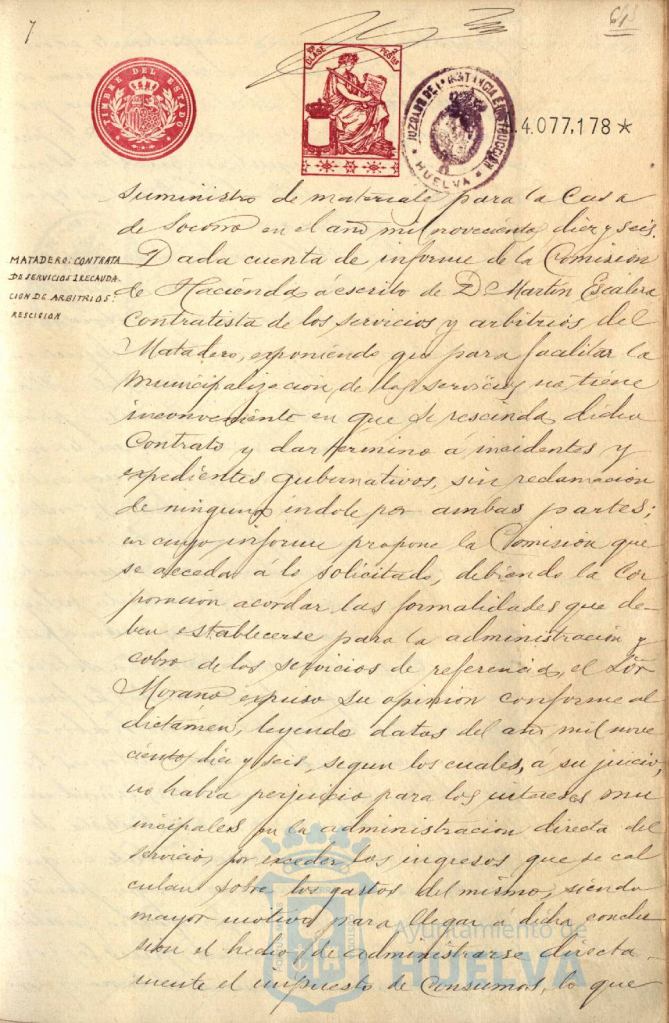 7
TIMBRE DEL ESTADO
CLASE
PESETAS
JUZGADO DE 1ª INSTANCIA E INSTRUCCION
HUELVA
4.077,178 *
suministro de materiale para la Casa
de Socorro en el año mil novecientos diez y seis.
MATADERO: CONTRATA
DE SERVICIOS Y RECAUDA-
CION DE ARBITRIOS:
RESCICION
Dada cuenta de informe de la Comision
de Hacienda á escrito de D Martin Escalera
Contratista de los servicios y arbitrios del
Matadero, exponiendo que para facilitar la
municipalizacion de los servicios no tiene
inconveniente en que se rescinda dicho
Contrato y dar termino á incidentes y
expedientes gubernativos, sin reclamacion
de ninguna indole por ambas partes;
en cuyo informe propone la Comision que
se acceda á lo solicitado, debiendo la Cor
poracion acordar las formalidades que de-
ben establecerse para la administracion y
cobro de los servicios de referencia, el Sor
Morano expuso su opinion conforme al
dictámen, leyendo datos del año mil nove
cientos diez y seis, segun los cuales, á su juicio,
no habia perjuicio para los intereses mu
nicipales en la administracion directa del
servicio, por exceder los ingresos que se cal
culan sobre los gastos del mismo, siendo
mayor motivo para llegar á dicha conclu
sion el hecho de administrarse directa-
mente el impuesto de Consumos, lo que
Ayuntamiento de
HUELVA